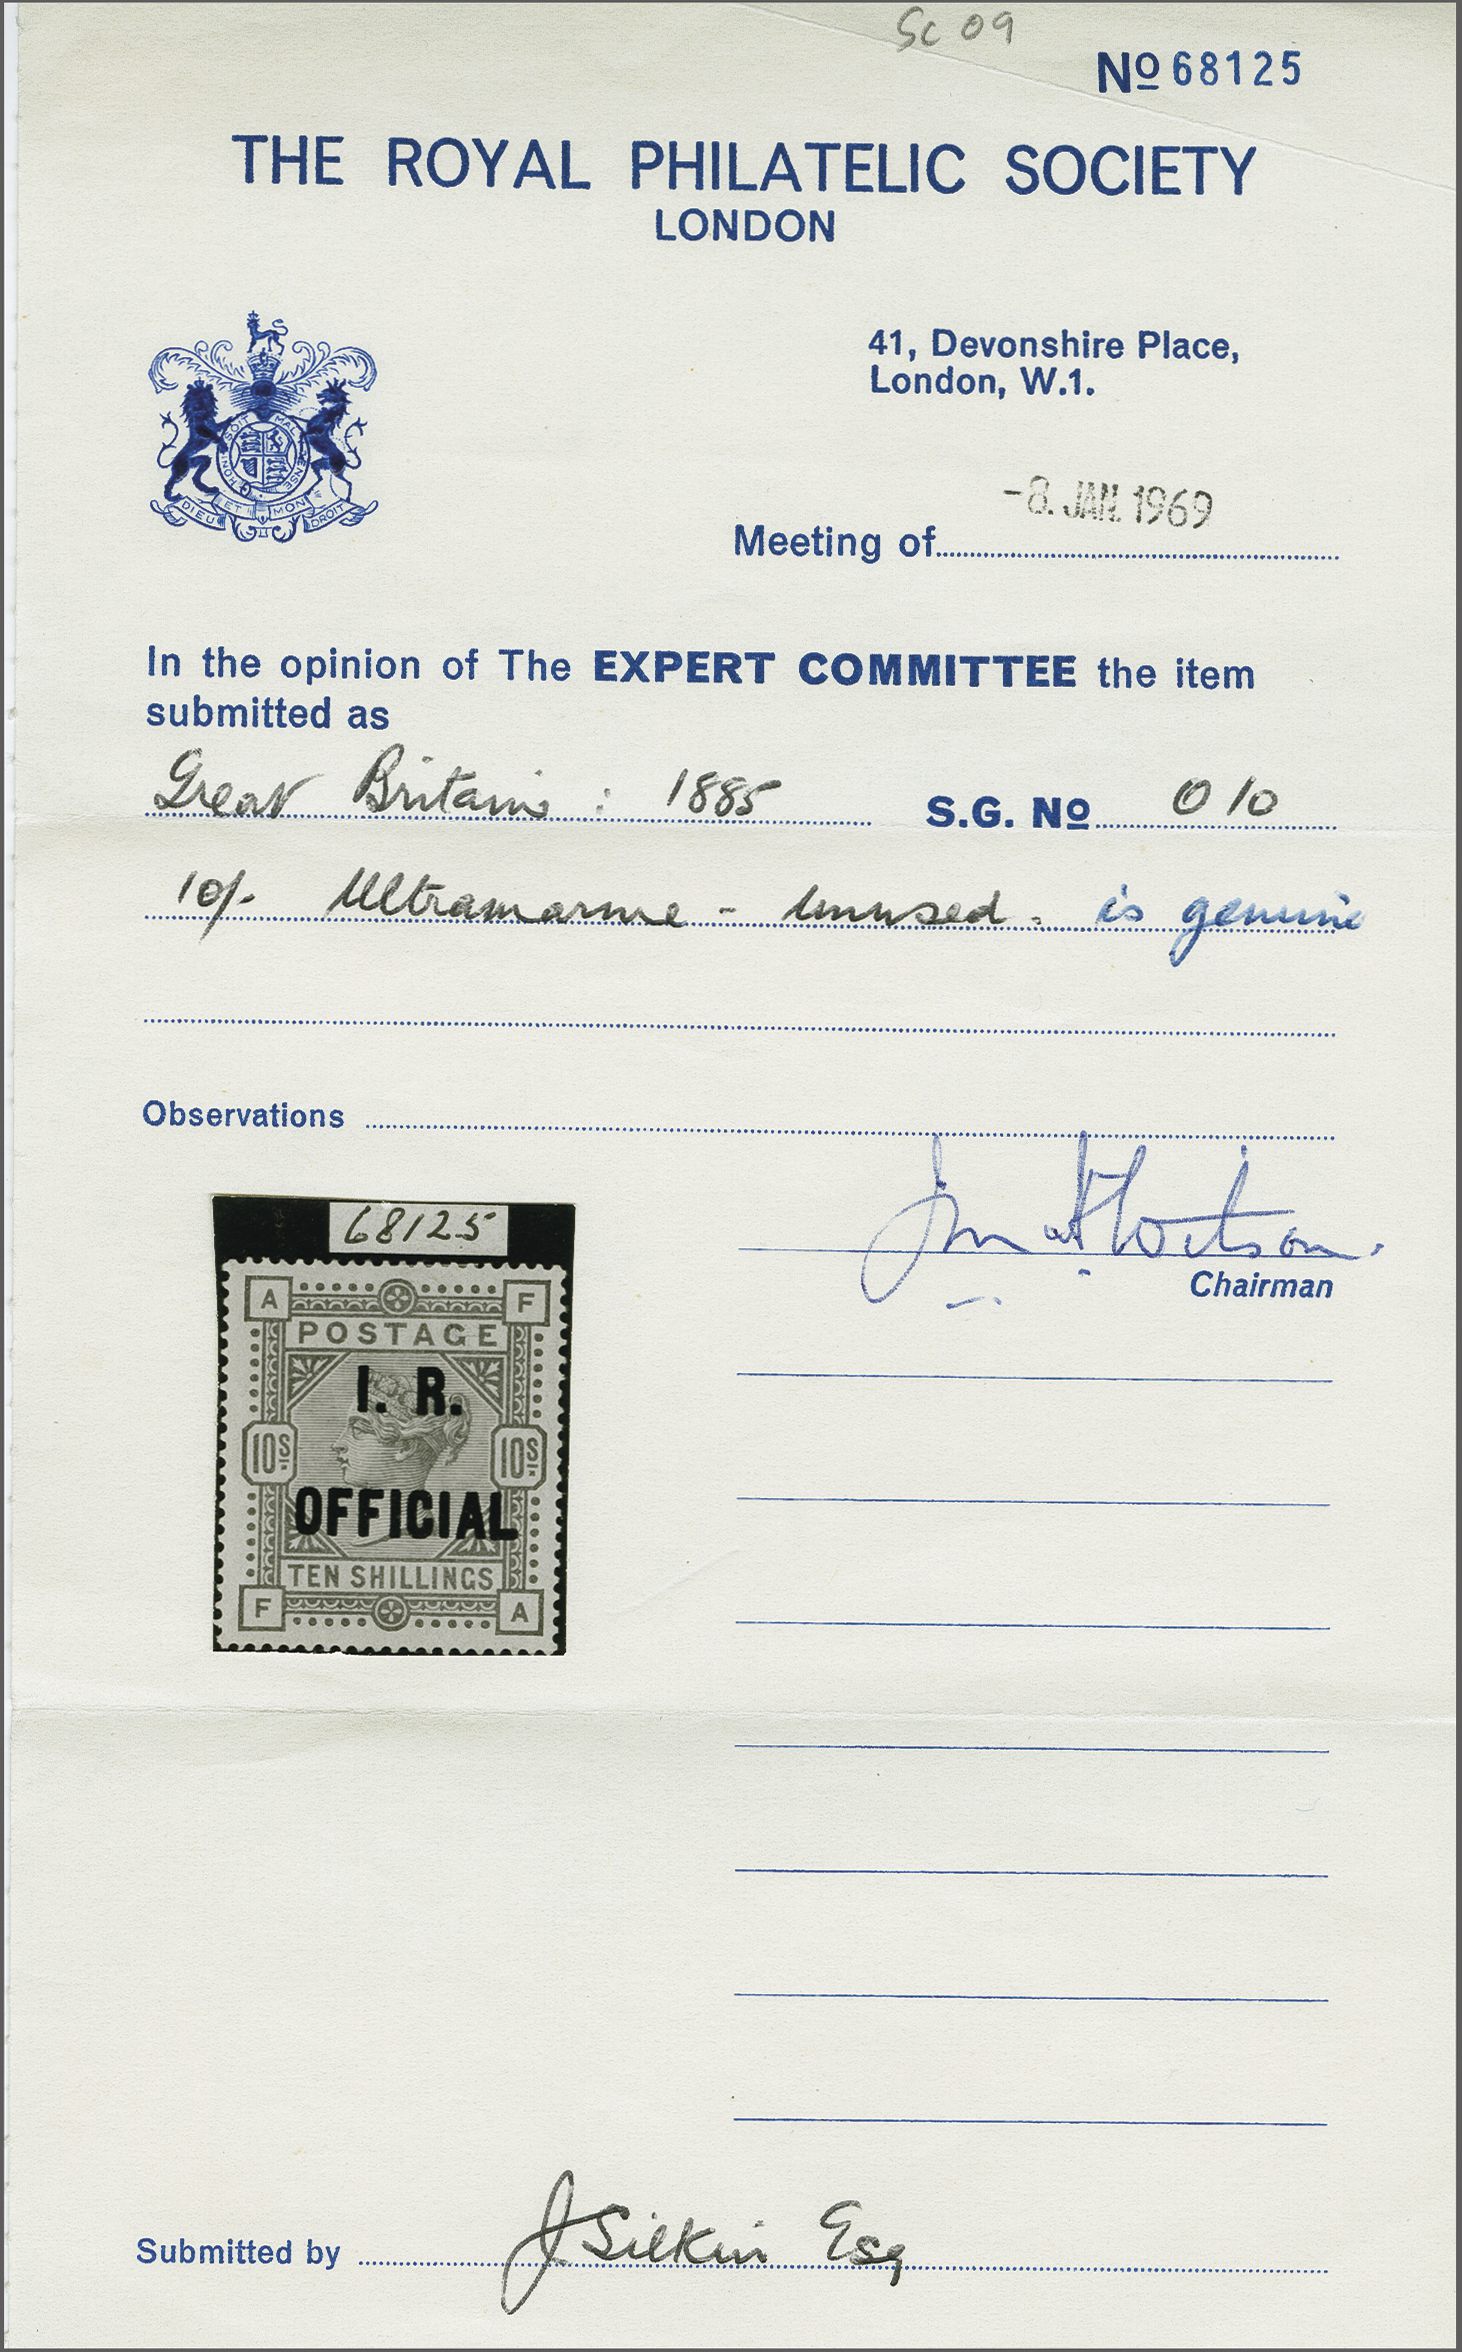 Sc 09
No 68125
THE ROYAL PHILATELIC SOCIETY
LONDON
41, Devonshire Place,
London, W.1.
HONI SOIT MAL PENSE
DIEU ET MON DROIT
-8. JAN. 1969
Meeting of
In the opinion of The EXPERT COMMITTEE the item
submitted as
Great Britain : 1885 S.G. No 010
10/- Ultramarine - unused - is genuine
Observations
68125
A F
POSTAGE
I. R.
10S 10S
OFFICIAL
TEN SHILLINGS
F A
Chairman
Submitted by J Silkin Esq